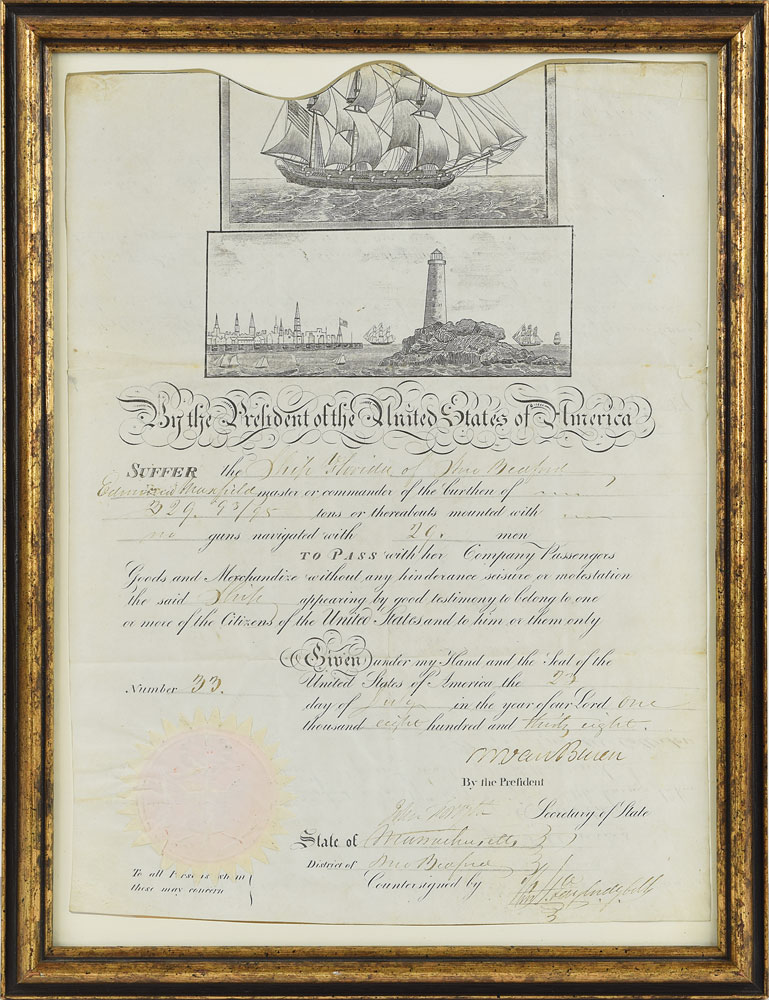 By the President of the United States of America
SUFFER the Ship Florida of New Bedford
master or commander of the burthen of
329. 93/95 tons or thereabouts mounted with
no guns navigated with 29. men
TO PASS with her Company Passengers
Goods and Merchandize without any hinderance seisure or molestation
the said Ship appearing by good testimony to belong to one
or more of the Citizens of the United States and to him or them only
Given under my Hand and the Seal of the
Number 33. United States of America the 23
day of July in the year of our Lord one
thousand eight hundred and thirty eight.
MVanBuren
By the President
Secretary of State
State of Massachusetts
District of New Bedford
To all Persons whom
these may concern
Countersigned by